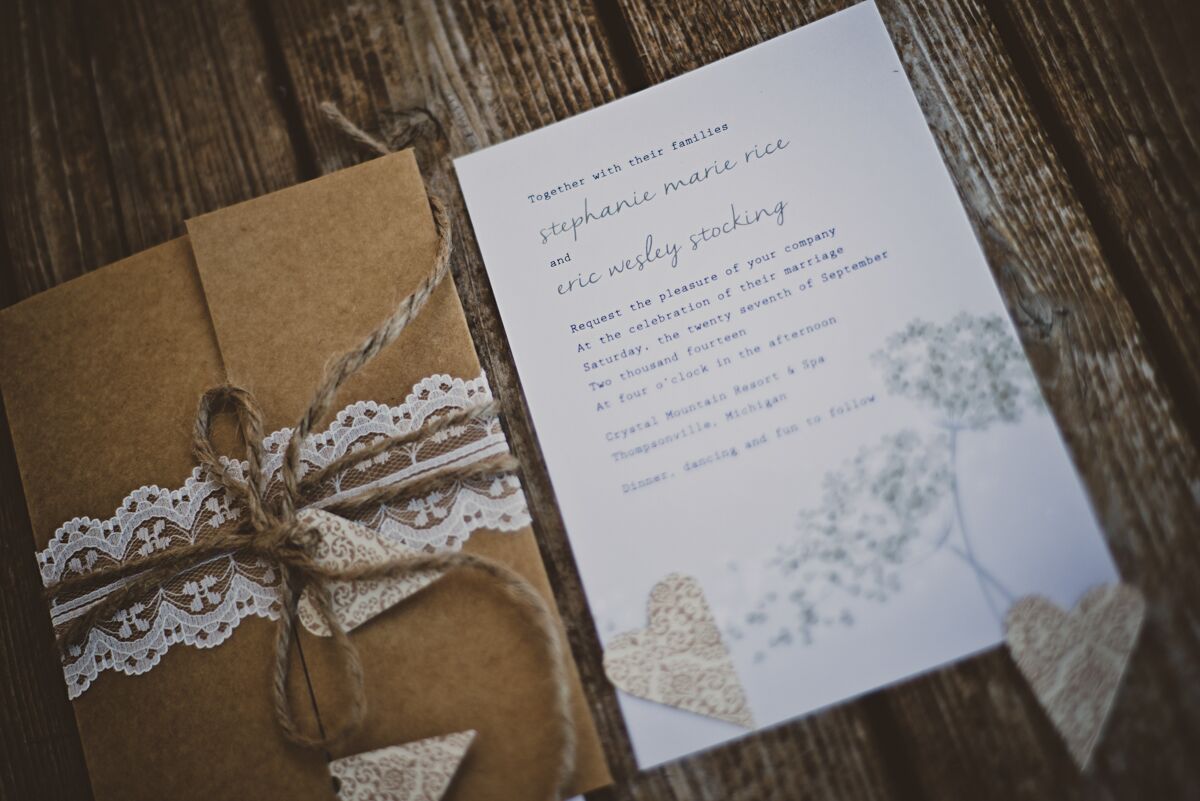 Together with their families
stephanie marie rice
and
eric wesley stocking
Request the pleasure of your company
At the celebration of their marriage
Saturday, the twenty seventh of September
Two thousand fourteen
At four o'clock in the afternoon
Crystal Mountain Resort & Spa
Thompsonville, Michigan
Dinner, dancing and fun to follow